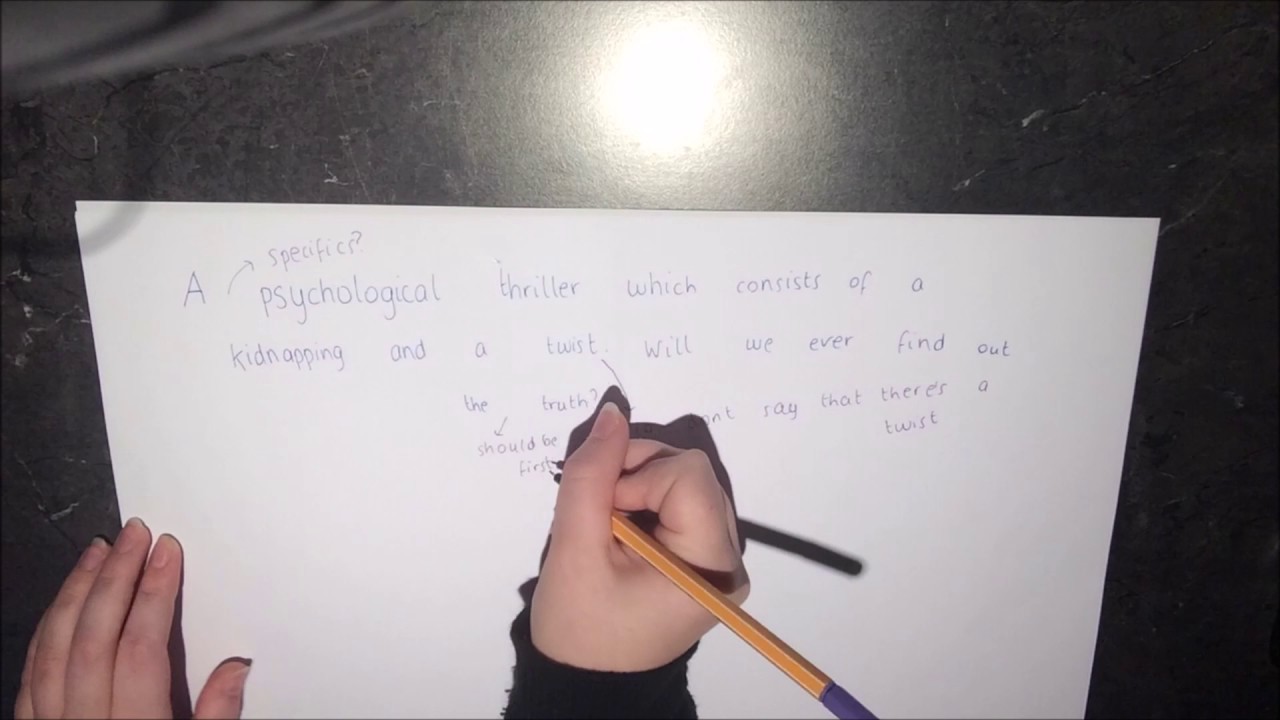 specifics?
A psychological thriller which consists of a
kidnapping and a twist. Will we ever find out
the truth?
say that there's a
twist
should be
first